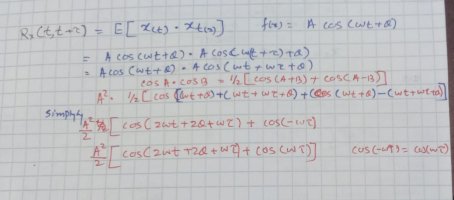 Rx(t,t+τ) = E[ x(t) · xt(τ)]   f(x) = A cos(ωt+θ)
= A cos(ωt+θ) · A cos(ωt + τ)+θ)
= A cos (ωt + θ) · A cos(ωt + ωτ + θ)
cos A · cos B = 1/2 [ cos (A+B) + cos(A-B)]
A² · 1/2 [ cos (ωt+θ)+(ωt + ωτ + θ) + (cos (ωt+θ) - (ωt+ωτ+θ)]
Simplify
A²/2 [ cos( 2ωt + 2θ + ωτ) + cos(-ωτ)
A²/2 [ cos( 2ωt + 2θ + ωτ) + cos (ωτ)]   cos(-ωτ) = cos(ωτ)